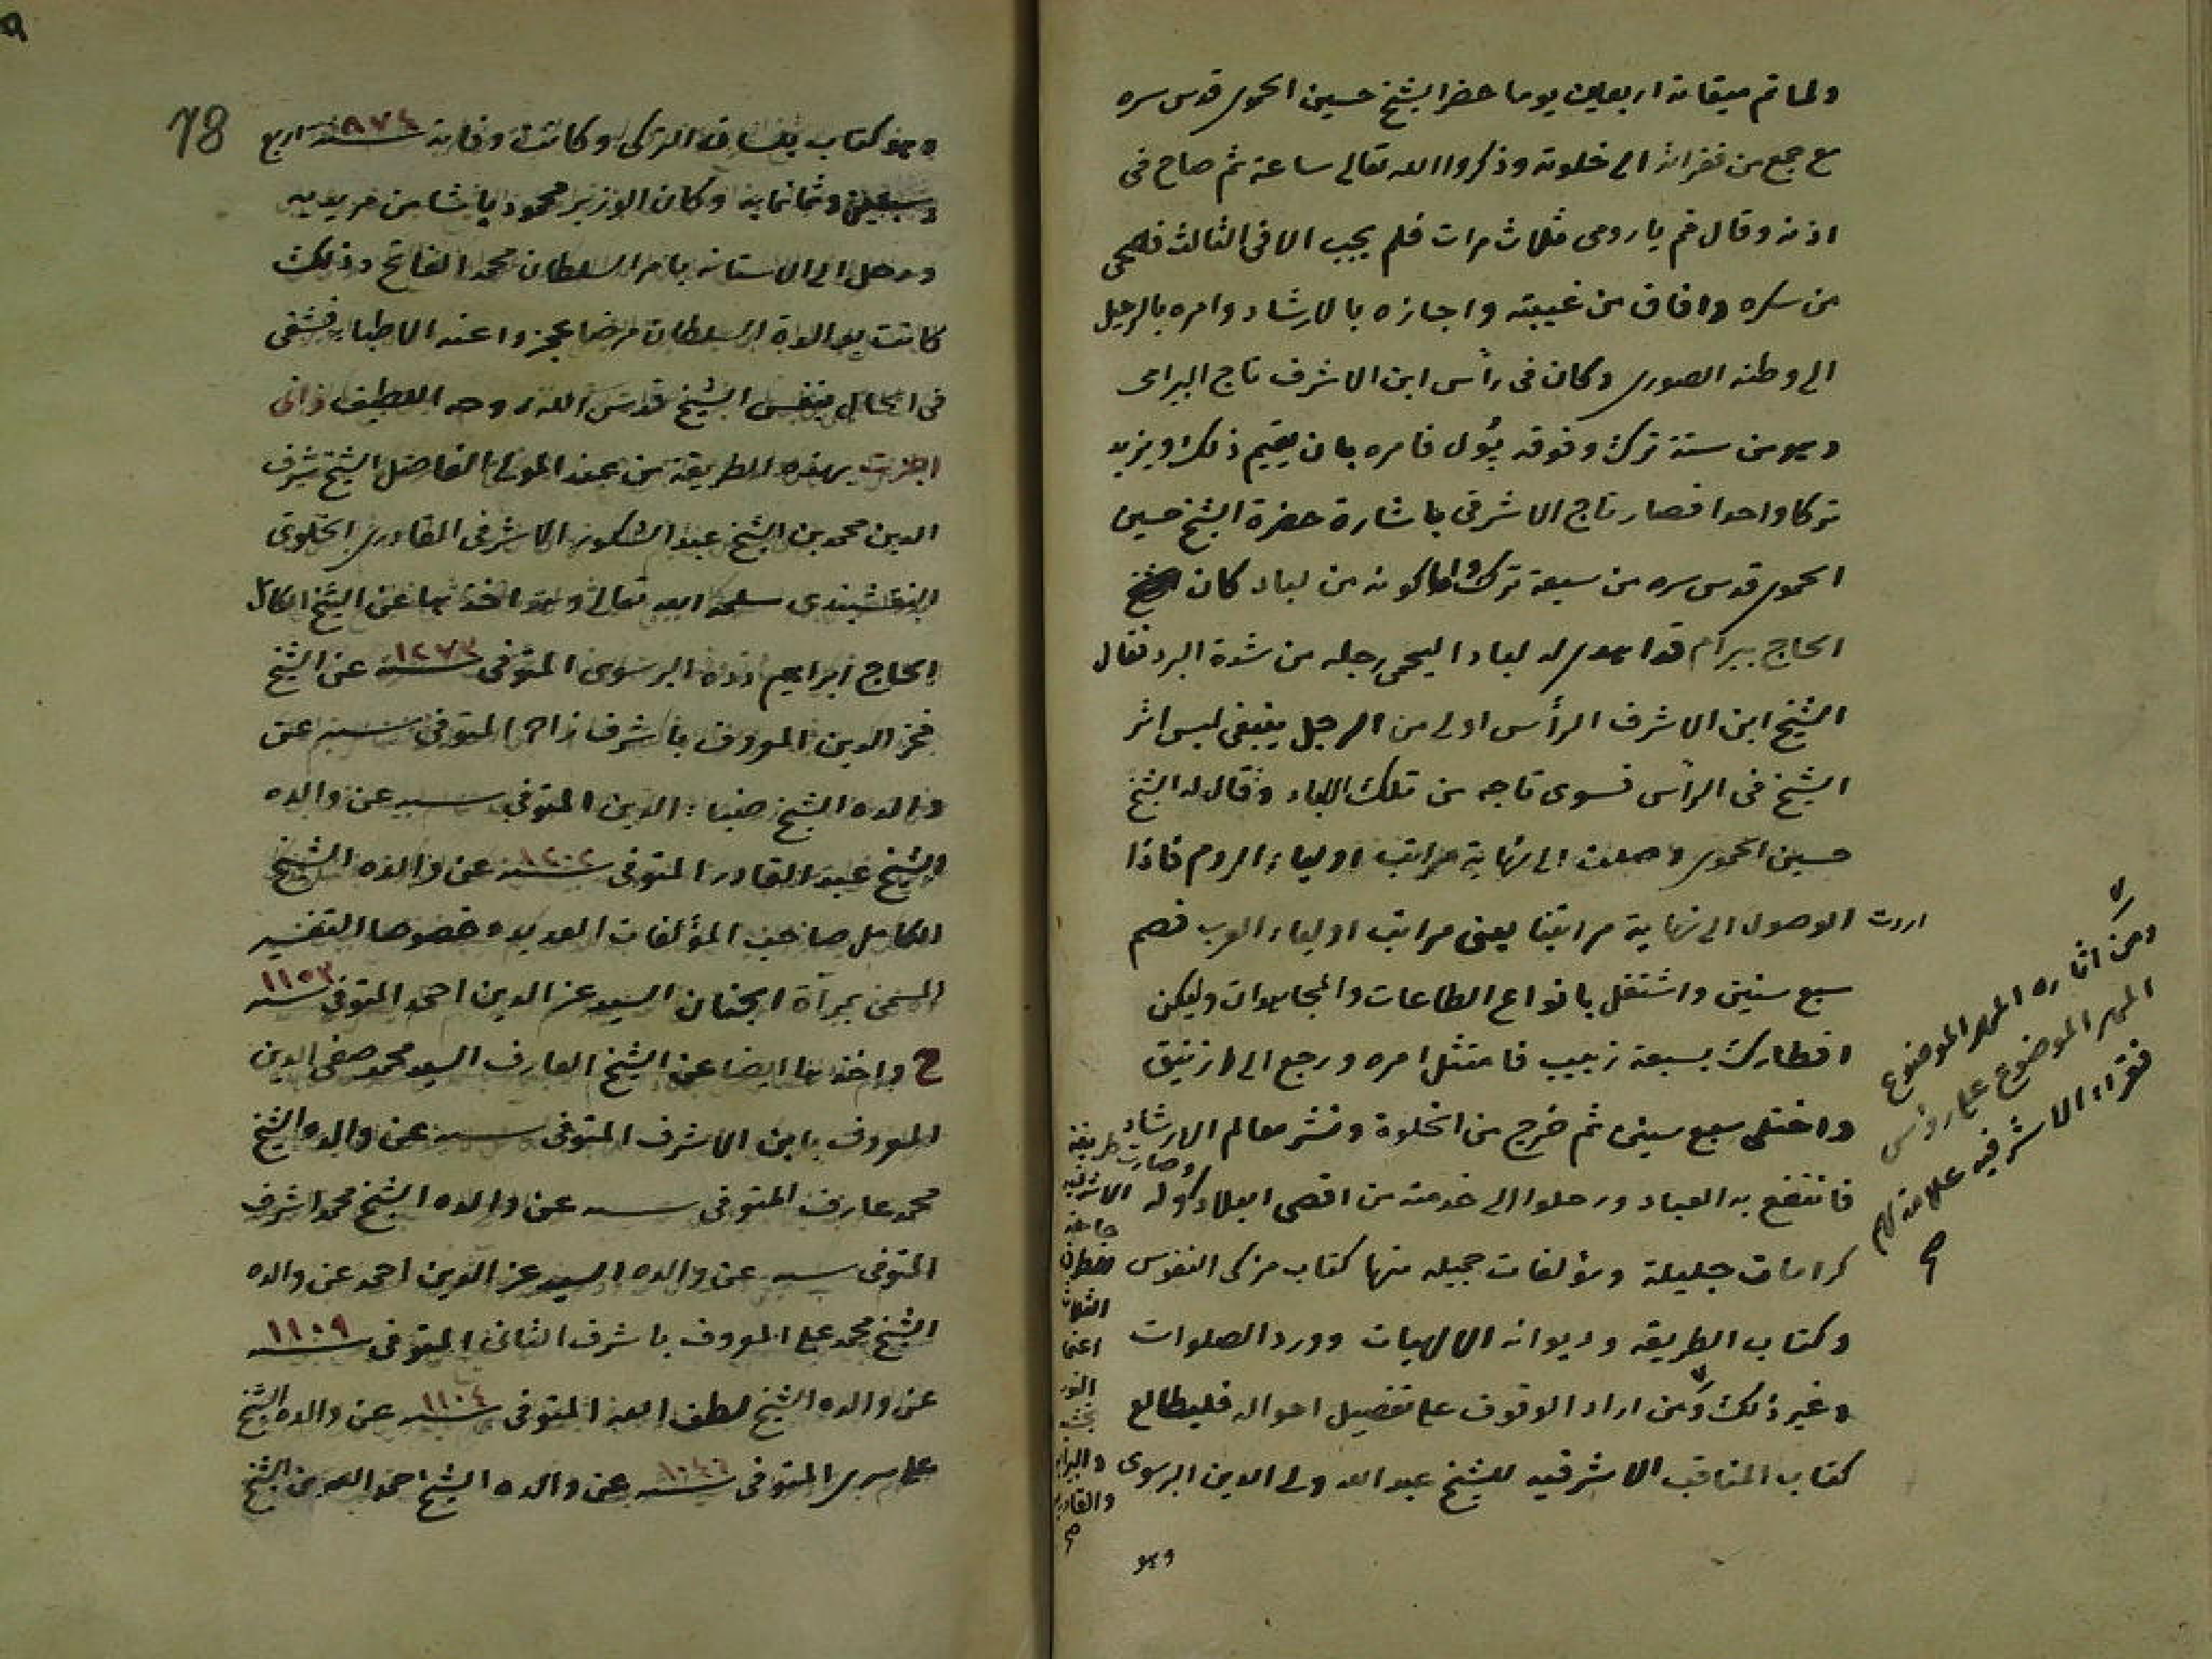 ولما تم ميقاته اربعين يوما حضر الشيخ حسين الحموى قدس سره
مع جمع من فقرائه الى خلوته وذكروا الله تعالى ساعة ثم صاح فى
اذنه وقال قم يا رومى ثلاث مرات فلم يجب الا فى الثالث
من سكره وافاق من غيبته واجازه بالارشاد وامره بالرحيل
الى وطنه الصورى وكان فى رأس ابن الاشرف تاج البيرامى
وهو من ستة ترك وفوقه فامره بان يقيم ذلك ويزيد
تركا واحدا فصار تاج الاشرفى باشارة حضرة الشيخ حسين
الحموى قدس سره من سبعة ترك واما كونه من لباد كان
الحاج بيرام قد اهدى له لبادا ليحمى رجله من شدة البرد فقال
الشيخ ابن الاشرف الرأس اولى من الرجل ينبغى لبس اثر
الشيخ فى الرأس فسوى تاجه من تلك اللباد وقال له الشيخ
حسين الحموى وصلت الى نهاية مراتب اولياء الروم فاذا
اردت الوصول الى نهاية مراتبنا يعنى مراتب اولياء العرب فصم
سبع سنين واشتغل بانواع الطاعات والمجاهدات وليكن
افطارك بسبعة زبيب فامتثل امره ورجع الى ازنيق
واختلى سبع سنين ثم خرج من الخلوة ونشر معالم الارشاد
فانتفع به العباد ورحلوا الى خدمته من اقصى البلاد وله
كرامات جليلة ومؤلفات جميله منها كتاب مزكى النفوس
وكتاب الطريقه وديوانه الالهيات وورد الصلوات
وغير ذلك ومن اراد الوقوف على تفصيل احواله فليطالع
كتاب المناقب الاشرفيه للشيخ عبد الله ولى الدين البرسوى
وهو
ومن اثاره المهر الموضوع
المهر الموضوع على رؤس
فقراء الاشرفيه علامة لهم
صح
وصارت طريقة
الاشرفيه
جامعة
الثلاث
اعنى
والقادريه
صح
78
وهو كتاب بلسان التركى وكانت وفاته سنة ٨٧٤ اربع
وسبعين وثمانمايه وكان الوزير محمود پاشا من مريديه
ورحل الى الاستانه بامر السلطان محمد الفاتح وذلك
كانت بوالدة السلطان مرضا عجزوا عنه الاطباء فشفى
فى الحال بنفس الشيخ قدس الله روحه اللطيف وانى
اجزت بهذه الطريقة من عند المولى الفاضل الشيخ شرف
الدين محمد بن الشيخ عبد الشكور الاشرفى القادرى الخلوتى
النقشبندى سلمه الله تعالى وهو اخذها عن الشيخ الكامل
الحاج ابراهيم دده البرسوى المتوفى سنة ١٢٧٣ عن الشيخ
فخر الدين المعروف باشرف زاده المتوفى سنه عن
والده الشيخ ضياء الدين المتوفى سنه عن والده
الشيخ عبد القادر المتوفى سنه ١٢٠٢ عن والده الشيخ
الكامل صاحب المؤلفات العديده خصوصا التفسير
المسمى بمرآة الجنان السيد عز الدين احمد المتوفى سنه ١١٥٣
ح واخذها ايضا عن الشيخ العارف السيد محمد صفى الدين
المعروف بابن الاشرف المتوفى سنه عن والده الشيخ
محمد عارف المتوفى سنه عن والده الشيخ محمد اشرف
المتوفى سنه عن والده السيد عز الدين احمد عن والده
الشيخ محمد على المعروف باشرف الثانى المتوفى سنه ١١٠٩
عن والده الشيخ لطف الله المتوفى سنه ١١٠٤ عن والده الشيخ
المتوفى سنه عن والده الشيخ احمد الله بن الشيخ